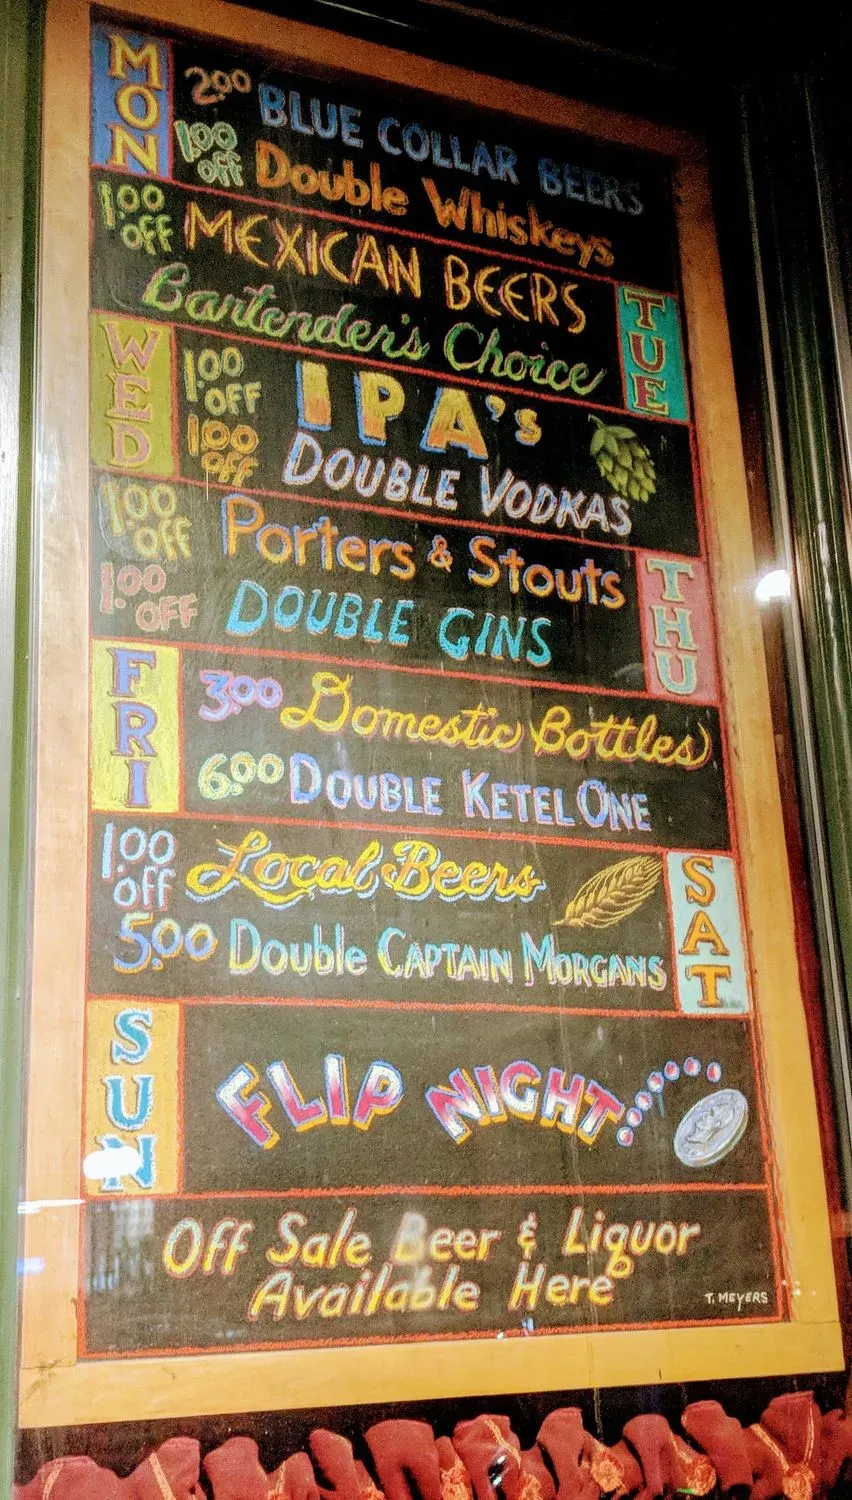 MON
2.00 BLUE COLLAR BEERS
1.00 OFF Double Whiskeys
1.00 OFF MEXICAN BEERS
Bartender's Choice
TUE
WED
1.00 OFF IPA's
1.00 OFF DOUBLE VODKAS
1.00 OFF Porters & Stouts
1.00 OFF DOUBLE GINS
THU
FRI
3.00 Domestic Bottles
6.00 DOUBLE KETEL ONE
1.00 OFF Local Beers
5.00 Double CAPTAIN MORGANS
SAT
SUN
FLIP NIGHT
Off Sale Beer & Liquor
Available Here
T. MEYERS